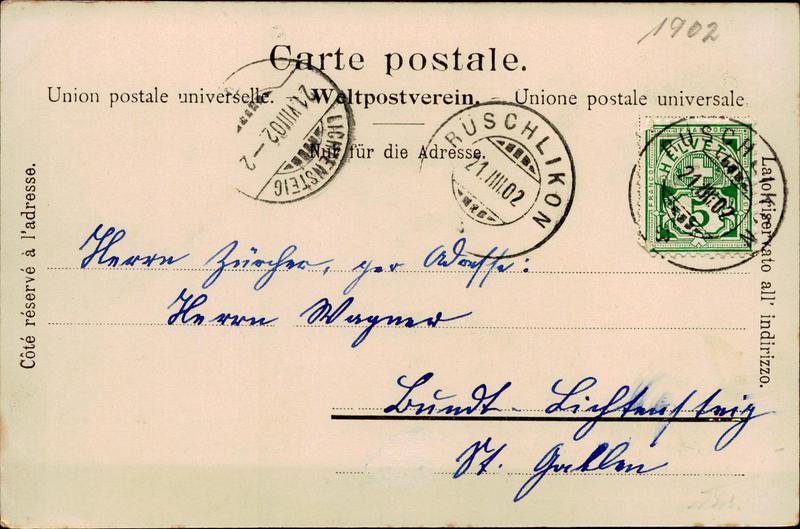 1902
Carte postale.
Union postale universelle. — Weltpostverein. — Unione postale universale
Nur für die Adresse.
Côté réservé à l'adresse.
Lato riservato all' indirizzo.
LICHTENSTEIG
21.VIII.02-2
RÜSCHLIKON
21.VIII.02
RÜSCHLIKON
21.VIII.02
HELVETIA
FRANCO
5
Herrn Zürcher, per Adresse:
Herrn Wagner
Bundt-Lichtensteig
St. Gallen